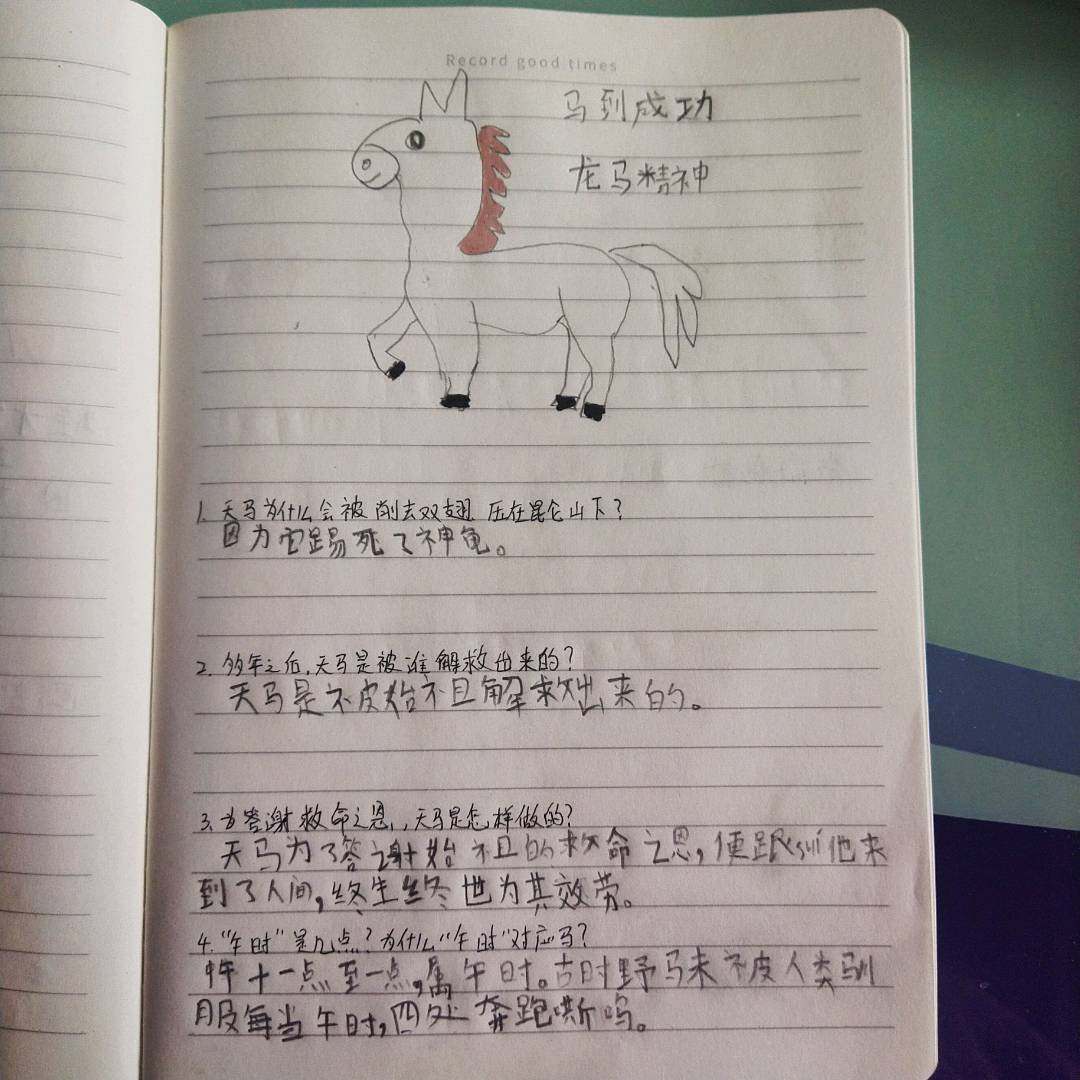 Record good times
马到成功
龙马精神
1. 天马为什么会被削去双翅压在昆仑山下?
因为它踢死了神龟。
2. 多年之后,天马是被谁解救出来的?
天马是被始祖解救出来的。
3. 为答谢救命之恩,天马是怎样做的?
天马为了答谢始祖的救命之恩,便跟sui他来
到了人间,终生终世为其效劳。
4. "午时"是几点?为什么"午时"对应马?
十一点至一点,属午时。古时野马未被人类驯
服每当午时,四处奔跑嘶鸣。